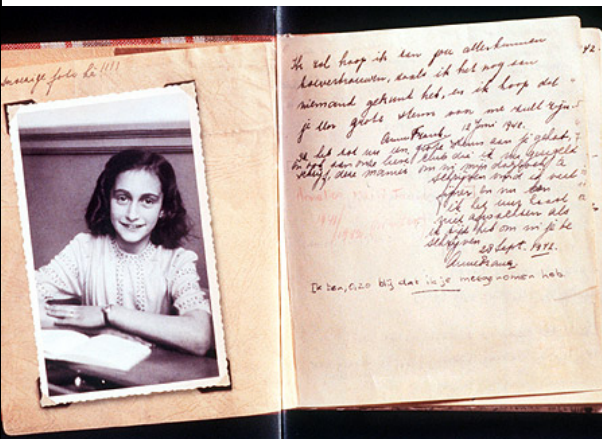 snoezige foto hè !!!!
Ik zal hoop ik aan jou alles kunnen
toevertrouwen, zoals ik het nog aan
niemand gekund heb, en ik hoop dat
je een grote steun voor me zult zijn.
Anne Frank 12 Juni 1942.
Ik heb tot nu een grote steun aan je gehad,
en ook aan onze lieve club die ik nu geregeld
schrijf, deze manier om in mijn dagboek te
schrijven vind ik veel
fijner en nu kan
ik het uur haast
niet afwachten als
ik tijd heb om in je te
schrijven
28 Sept. 1942.
Anne Frank
Ik ben, o, zo blij dat ik je meegenomen heb.
42.